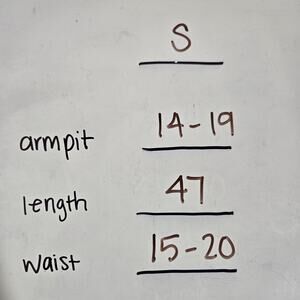 S
armpit 14-19
length 47
waist 15-20